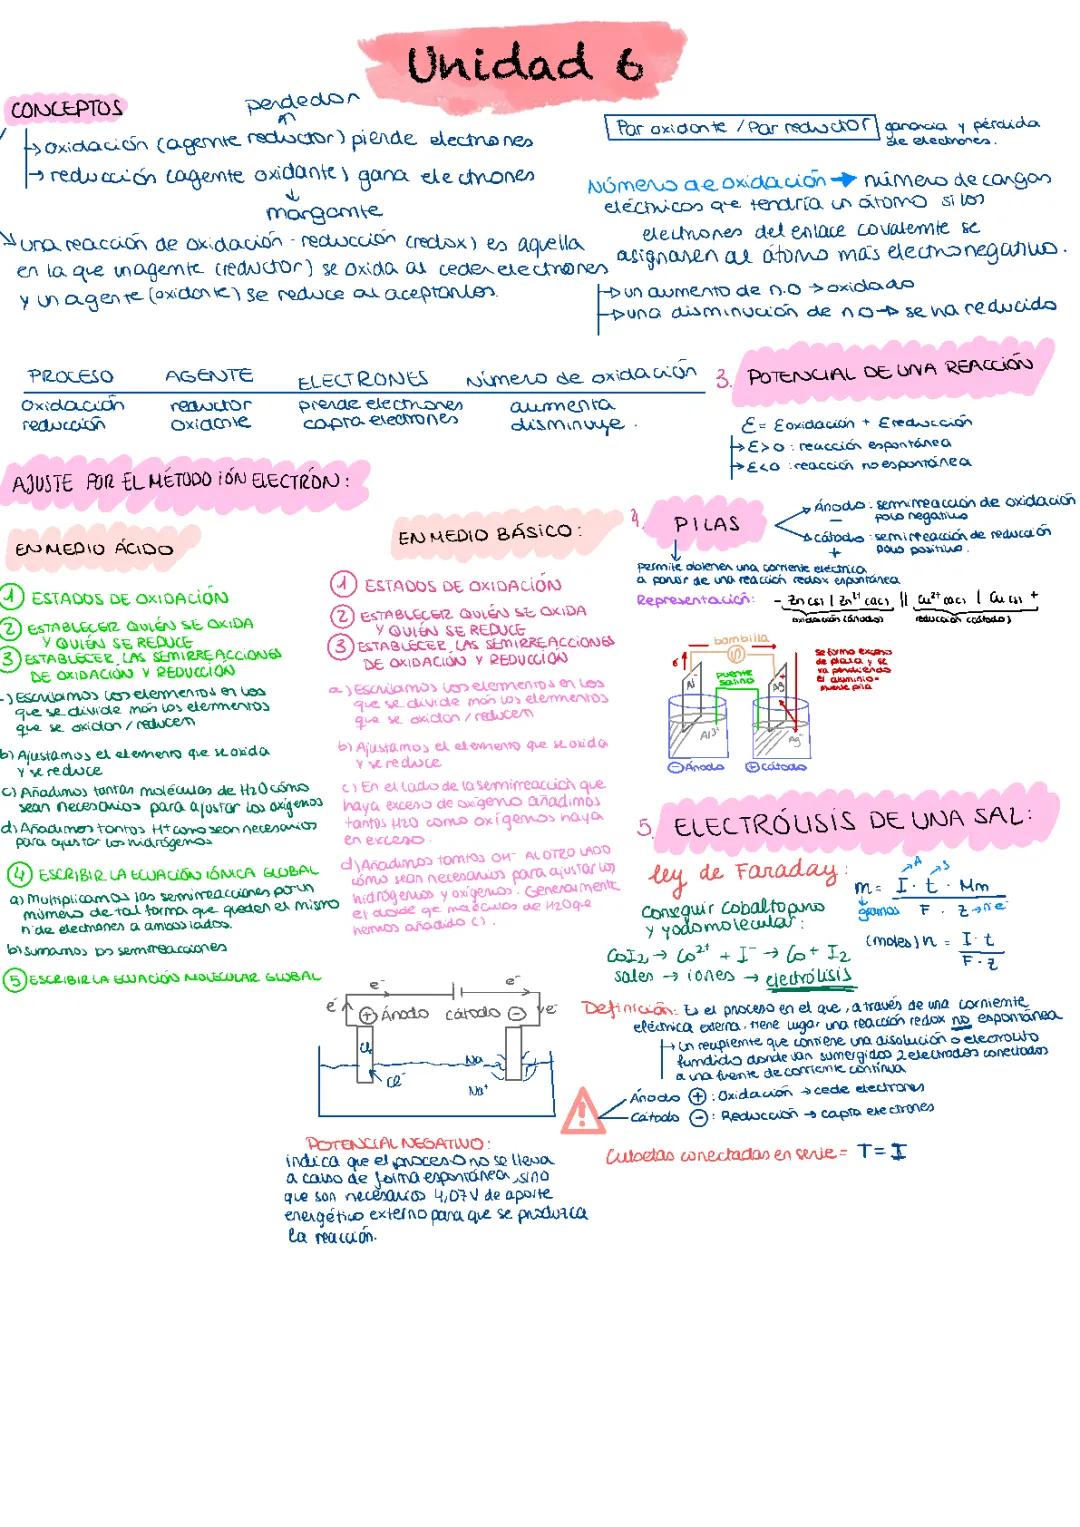 Unidad 6
CONCEPTOS
perdedor
oxidación (agente reductor) pierde electrones
reducción (agente oxidante) gana electrones
mangante
una reacción de oxidación-reducción (redox) es aquella
en la que un agente (reductor) se oxida al ceder electrones
y un agente (oxidante) se reduce al aceptarlos.
Par oxidante / Par reductor ganancia y pérdida
de electrones.
Número de oxidación → número de cargas
eléctricas que tendría un átomo si los
electrones del enlace covalente se
asignasen al átomo más electronegativo.
un aumento de n.o → oxidado
una disminución de no → se ha reducido
PROCESO AGENTE ELECTRONES Número de oxidación
Oxidación reductor pierde electrones aumenta
reducción oxidante capta electrones disminuye.
3. POTENCIAL DE UNA REACCIÓN
E = Eoxidación + Ereducción
E>0: reacción espontánea
E<0: reacción no espontánea
AJUSTE POR EL MÉTODO IÓN ELECTRÓN:
EN MEDIO ÁCIDO
1 ESTADOS DE OXIDACIÓN
2 ESTABLECER QUIÉN SE OXIDA
Y QUIÉN SE REDUCE
3 ESTABLECER LAS SEMIRREACCIONES
DE OXIDACIÓN Y REDUCCIÓN
-) Escribimos los elementos en los
que se divide más los elementos
que se oxidan / reducen
b) Ajustamos el elemento que se oxida
y se reduce
c) Añadimos tantas moléculas de H2O como
sean necesarias para ajustar los oxígenos
d) Añadimos tantos H+ como sean necesarios
para ajustar los hidrógenos
4 ESCRIBIR LA ECUACIÓN IÓNICA GLOBAL
a) Multiplicamos las semirreacciones por un
número de tal forma que queden el mismo
nº de electrones a ambos lados.
b) sumamos las semirreacciones
5 ESCRIBIR LA ECUACIÓN MOLECULAR GLOBAL
EN MEDIO BÁSICO:
1 ESTADOS DE OXIDACIÓN
2 ESTABLECER QUIÉN SE OXIDA
Y QUIÉN SE REDUCE
3 ESTABLECER LAS SEMIRREACCIONES
DE OXIDACIÓN Y REDUCCIÓN
a) Escribimos los elementos en los
que se divide más los elementos
que se oxidan / reducen
b) Ajustamos el elemento que se oxida
y se reduce
c) En el lado de la semirreacción que
haya exceso de oxígeno añadimos
tantas H2O como oxígenos haya
en exceso
d) Añadimos tantos OH- AL OTRO LADO
como sean necesarios para ajustar los
hidrógenos y oxígenos. Generalmente
el doble de moléculas de H2O que
hemos añadido c).
4. PILAS
Ánodo: semirreacción de oxidación
- polo negativo
cátodo: semirreacción de reducción
+ polo positivo.
permite obtener una corriente eléctrica
a partir de una reacción redox espontánea
Representación: - Zn(s) | Zn2+ (ac) || Cu2+ (ac) | Cu(s) +
oxidación (ánodo) reducción (cátodo)
bombilla
puente
salino
Al
Ag
Al3+
Ag+
⊖ Ánodo ⊕ cátodo
se forma exceso
de plata y se
va perdiendo
el aluminio =
muere pila
5. ELECTRÓLISIS DE UNA SAL:
ley de Faraday:
A s
m = I · t · Mm
F · z → nº e-
gramos
(moles) n = I · t
F · z
Conseguir Cobalto puro
y yodo molecular:
CoI2 → Co2+ + I- → Co + I2
sales → iones → electrólisis
Definición: Es el proceso en el que, a través de una corriente
eléctrica externa, tiene lugar una reacción redox no espontánea
Un recipiente que contiene una disolución o electrolito
fundido donde van sumergidos 2 electrodos conectados
a una fuente de corriente continua
Ánodo ⊕: Oxidación → cede electrones
Cátodo ⊖: Reducción → capta electrones
Cubetas conectadas en serie = T = I
e- e-
e- ⊕ Ánodo cátodo ⊖ e-
Cl2
Cl-
Na
Na+
POTENCIAL NEGATIVO:
indica que el proceso no se lleva
a cabo de forma espontánea, sino
que son necesarios 4,07V de aporte
energético externo para que se produzca
la reacción.